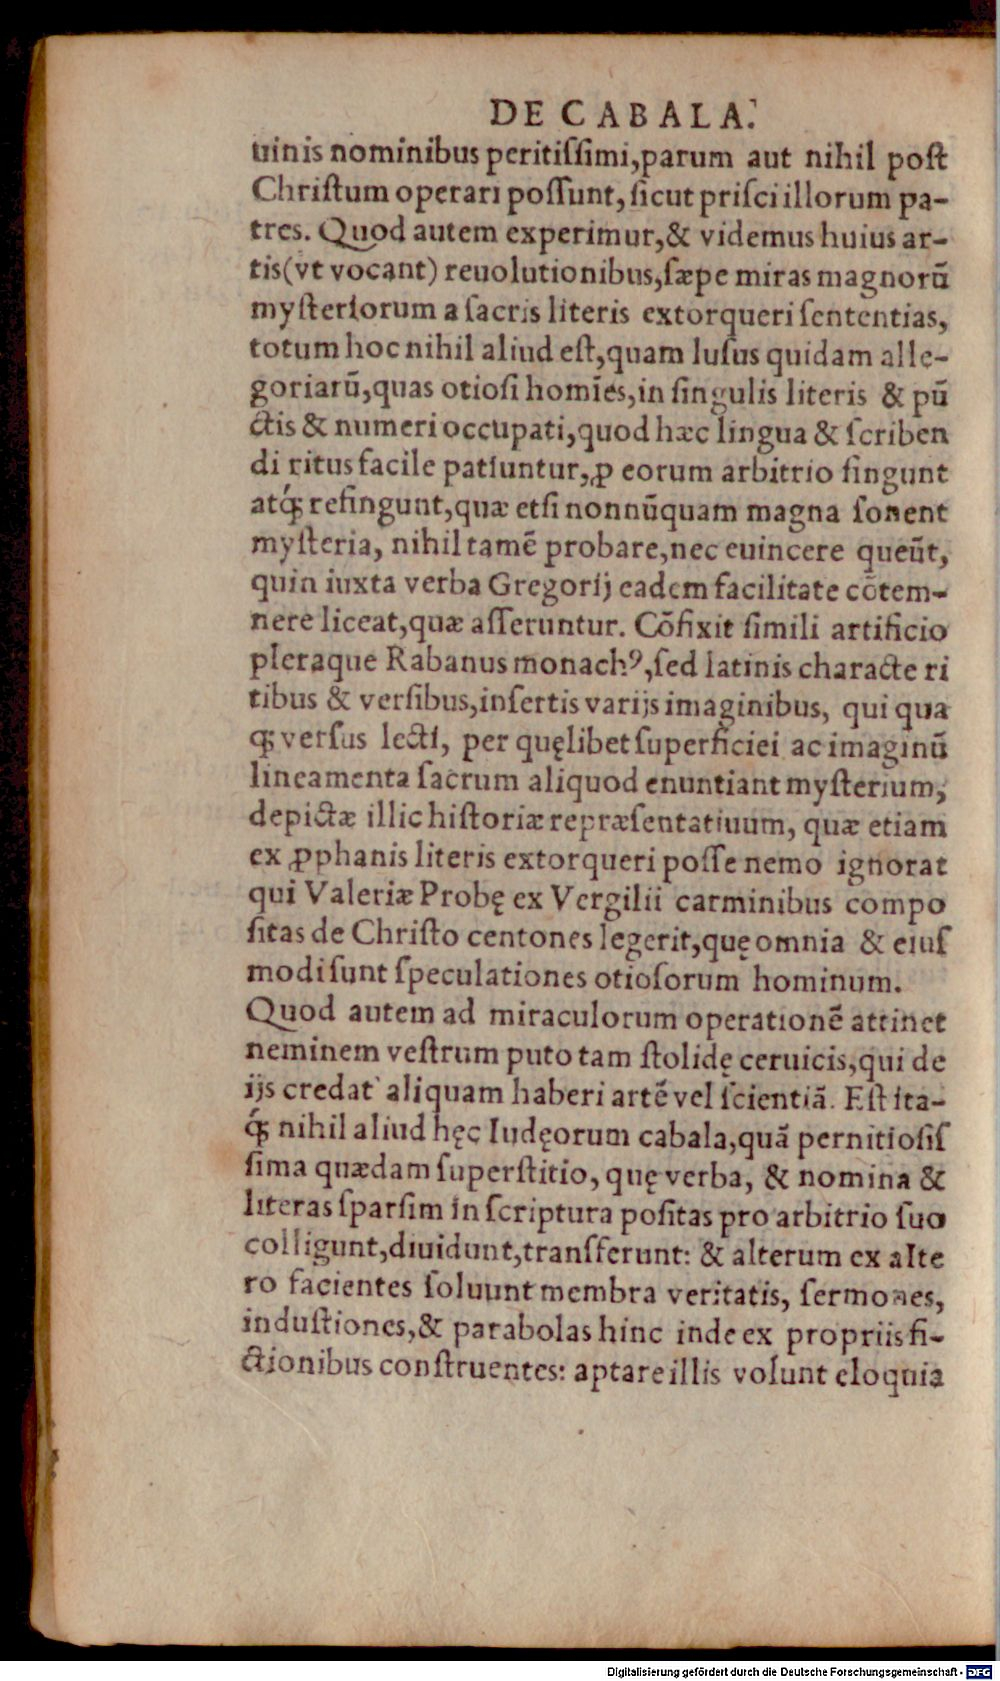 DE CABALA.
uinis nominibus peritiſſimi,parum aut nihil poſt
Chriſtum operari poſſunt, ſicut priſci illorum pa-
tres. Quod autem experimur,& videmus huius ar-
tis(vt vocant) reuolutionibus,ſæpe miras magnorū
myſteriorum a ſacris literis extorqueri ſententias,
totum hoc nihil aliud eſt,quam luſus quidam alle-
goriarū,quas otioſi homīes,in ſingulis literis & pū
ctis & numeri occupati,quod hæc lingua & ſcriben
di ritus facile patiuntur,ꝓ eorum arbitrio fingunt
atq́ꝫ refingunt,quæ etſi nonnūquam magna ſonent
myſteria, nihil tamē probare,nec euincere queūt,
quin iuxta verba Gregorij eadem facilitate cōtem-
nere liceat,quæ aſſeruntur. Cōfixit ſimili artificio
pleraque Rabanus monachꝰ,ſed latinis characte ri
tibus & verſibus,inſertis varijs imaginibus, qui qua
qꝫ verſus lecti, per quęlibet ſuperficiei ac imaginū
lineamenta ſacrum aliquod enuntiant myſterium,
depictæ illic hiſtoriæ repræſentatiuum, quæ etiam
ex ꝓphanis literis extorqueri poſſe nemo ignorat
qui Valeriæ Probę ex Vergilii carminibus compo
ſitas de Chriſto centones legerit,quę omnia & eiuſ
modi ſunt ſpeculationes otioſorum hominum.
Quod autem ad miraculorum operationē attinet
neminem veſtrum puto tam ſtolidę ceruicis,qui de
ijs credat aliquam haberi artē vel ſcientiā. Eſt ita-
q́ꝫ nihil aliud hęc Iudęorum cabala,quā pernitioſiſ
ſima quædam ſuperſtitio, quę verba, & nomina &
literas ſparſim in ſcriptura poſitas pro arbitrio ſuo
colligunt,diuidunt,tranſferunt: & alterum ex alte
ro facientes ſoluunt membra veritatis, ſermones,
induſtiones,& parabolas hinc inde ex propriis fi-
ctionibus conſtruentes: aptare illis volunt eloquia
Digitalisierung gefördert durch die Deutsche Forschungsgemeinschaft - DFG